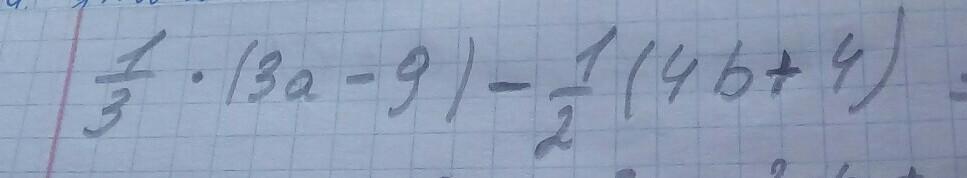 1/3 · (3a - 9) - 1/2 (4b + 4) =